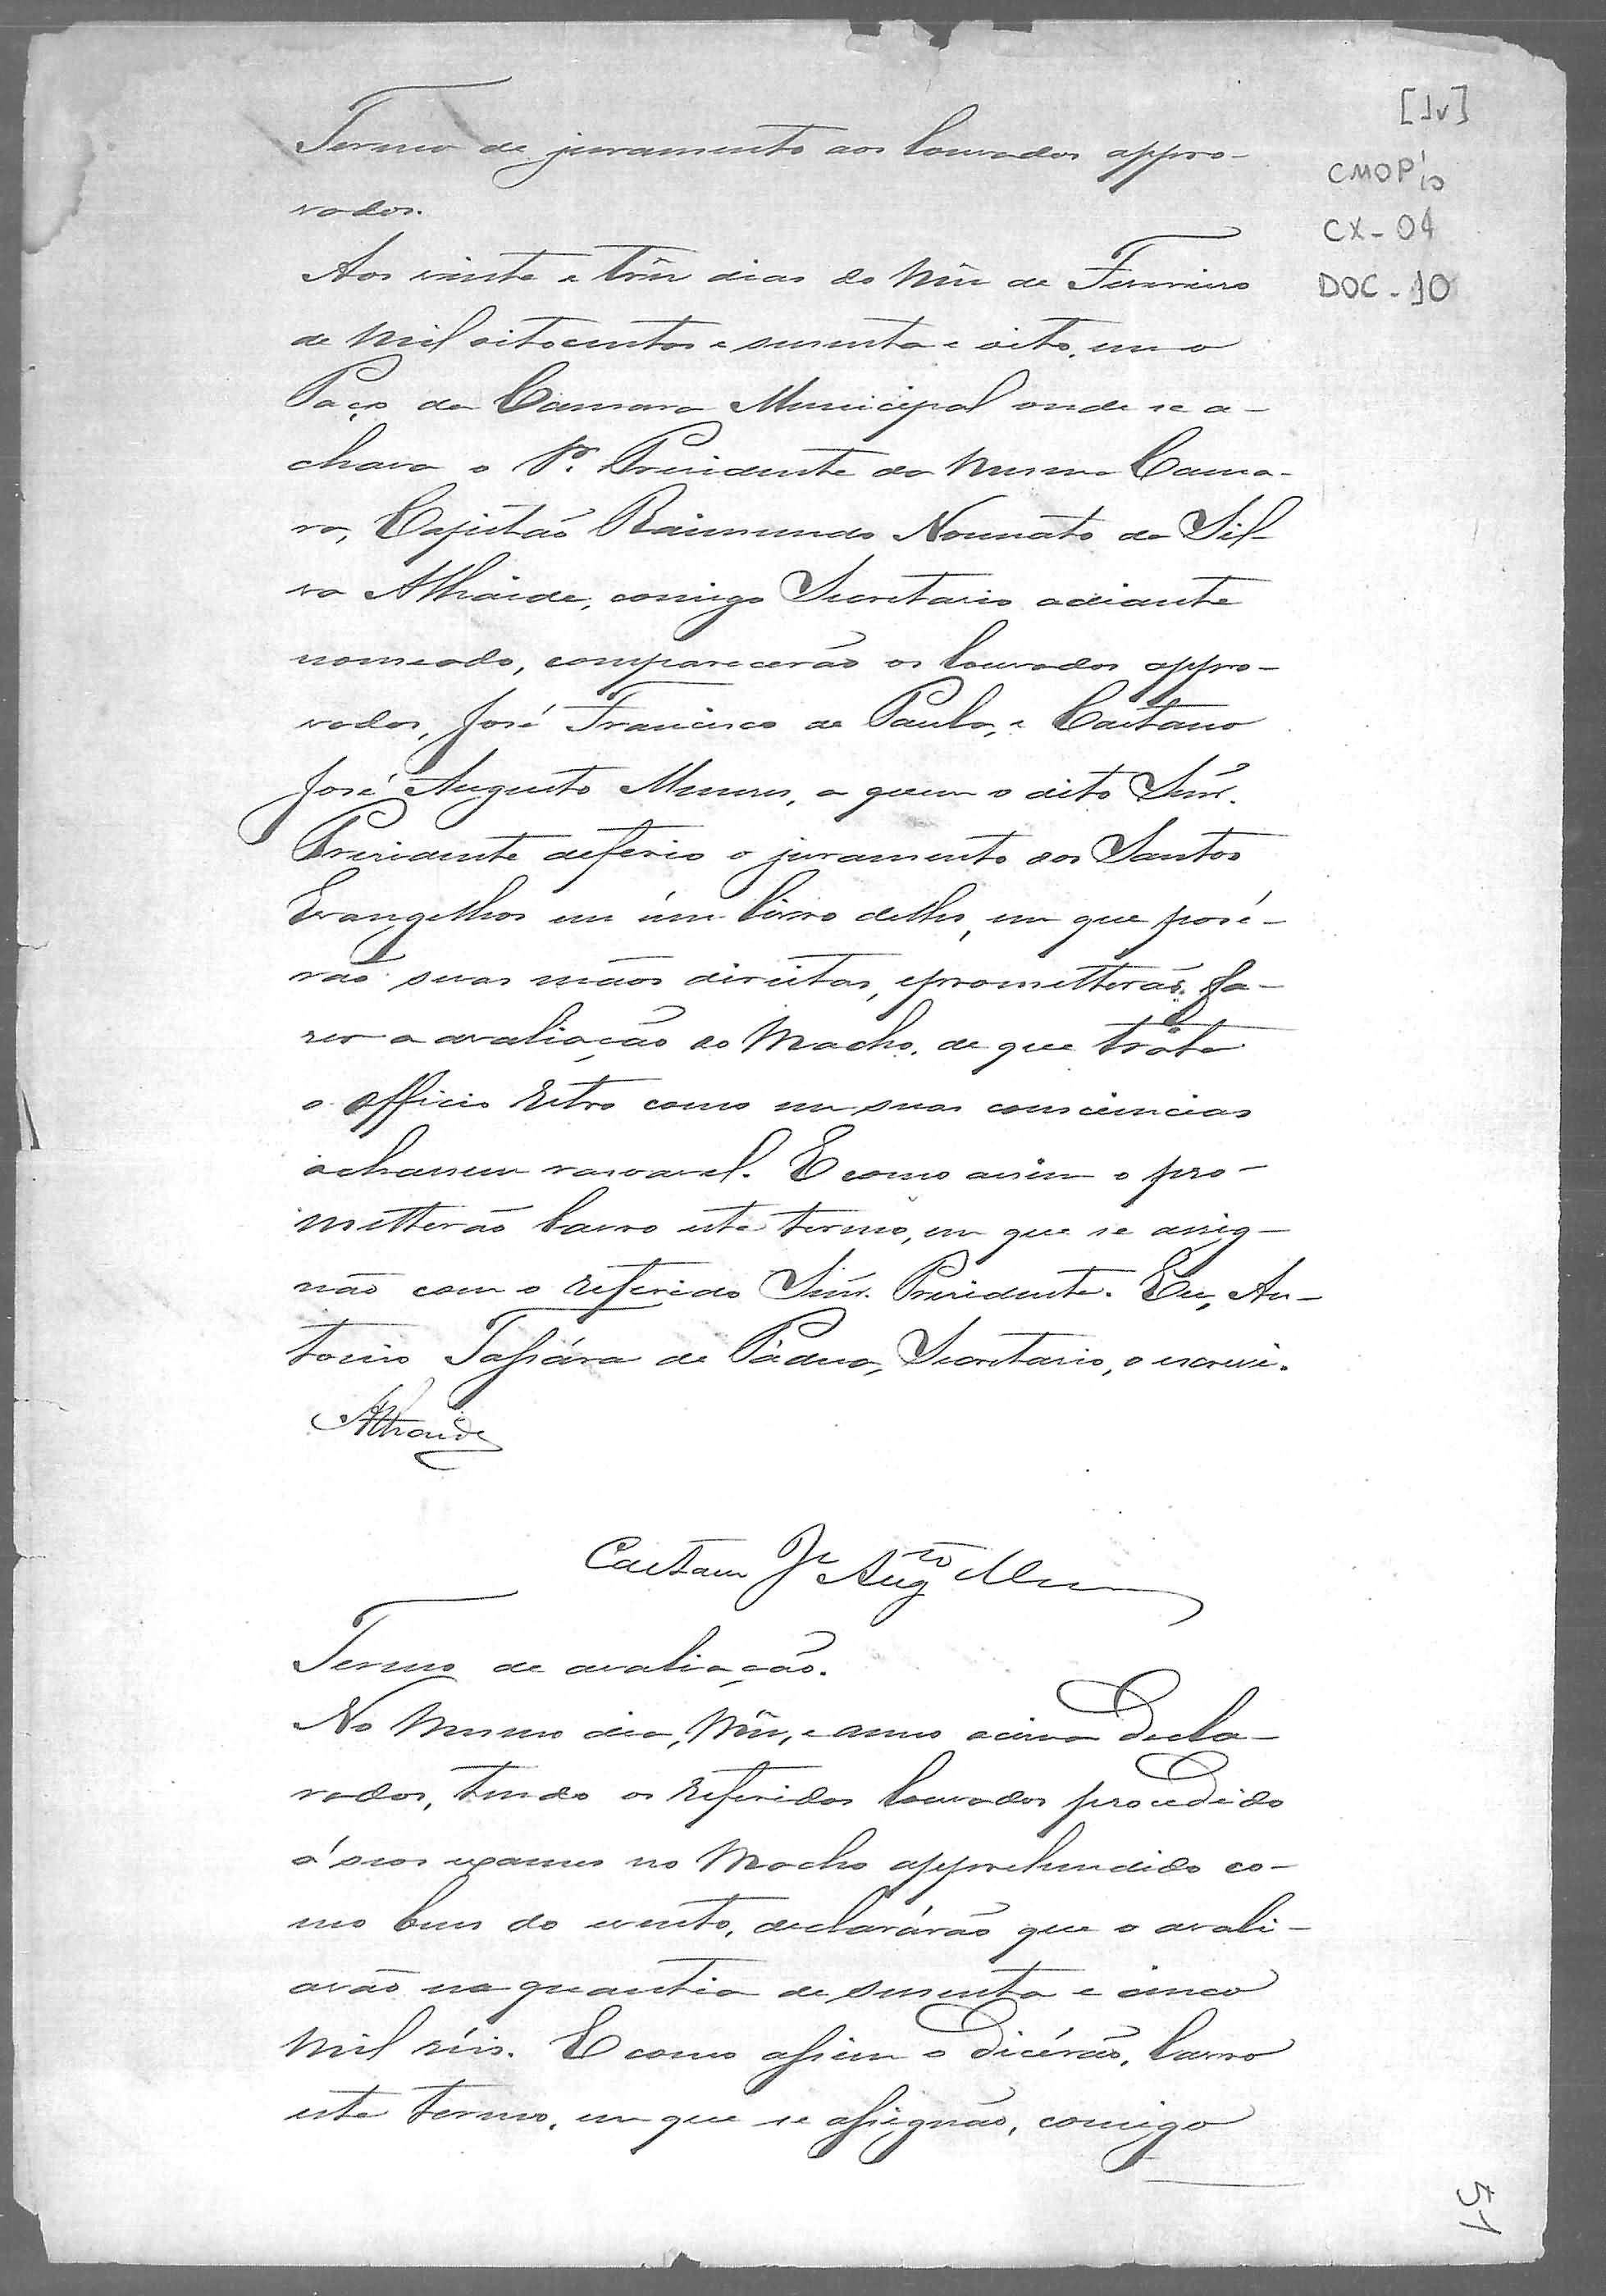 [1v]
CMOP
CX-04
DOC-10
Termo de juramento aos louvados appro-
vados.
Aos vinte e trêz dias do Mêz de Fevereiro
de Mil oitocentos e sessenta e oito, em o
Paço da Camara Municipal onde se a-
chava o Sr. Presidente da mesma Cama-
ra, Capitão Raimundo Nonnato da Sil-
va Athaide, comigo Secretario adiante
nomeado, comparecerão os louvados appro-
vados, José Francisco de Paula, e Caetano
José Augusto Menezes, a quem o dito Senr.
Presidente deferio o juramento dos Santos
Evangelhos em úm livro delles, em que pozé-
rão suas mãos direitas, e prometterão fa-
zer a avaliação do Macho, de que trata
o officio retro como em suas consciencias
achassem rasoavel. E como assim o pro-
metterão lavro este termo, em que se assig-
não com o referido Senr. Presidente. Eu, An-
tonio Tassára de Pàdua, Secretario, o escrevi.
Athaide
Caetano Je. Augto
Termo de avaliação.
No mesmo dia, Mêz, e anno acima decla-
rados, tendo os referidos louvados procedido
á seos exames no Macho apprehendido co-
mo bens do evento, declarárão que o avali-
avão na quantia de sessenta e cinco
mil réis. E como assim o dicérão, lavro
este termo, em que se assignão, comigo
51